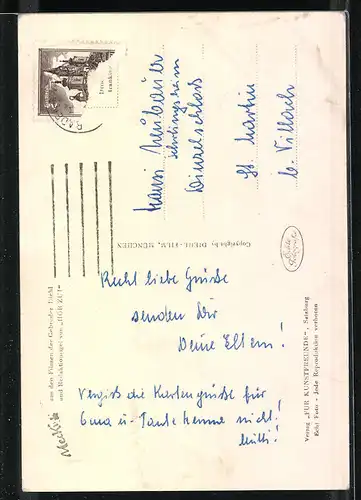 Recht liebe Grüsse
senden Dir
Deine Eltern!
Vergiss die Kartengrüsse für
Oma u. Tante Henne nicht!
Mutti!
Hansi Neubauer
Dinzelschloss
St. Martin
b. Villach
Copyright by DIEHL-FILM, MÜNCHEN
aus den Filmen der Gebrüder Diehl
und Redaktionsigel von „HÖR ZU!"
Verlag „FÜR KUNSTFREUNDE", Salzburg
Echt Foto - Jede Reproduktion verboten
Mecki